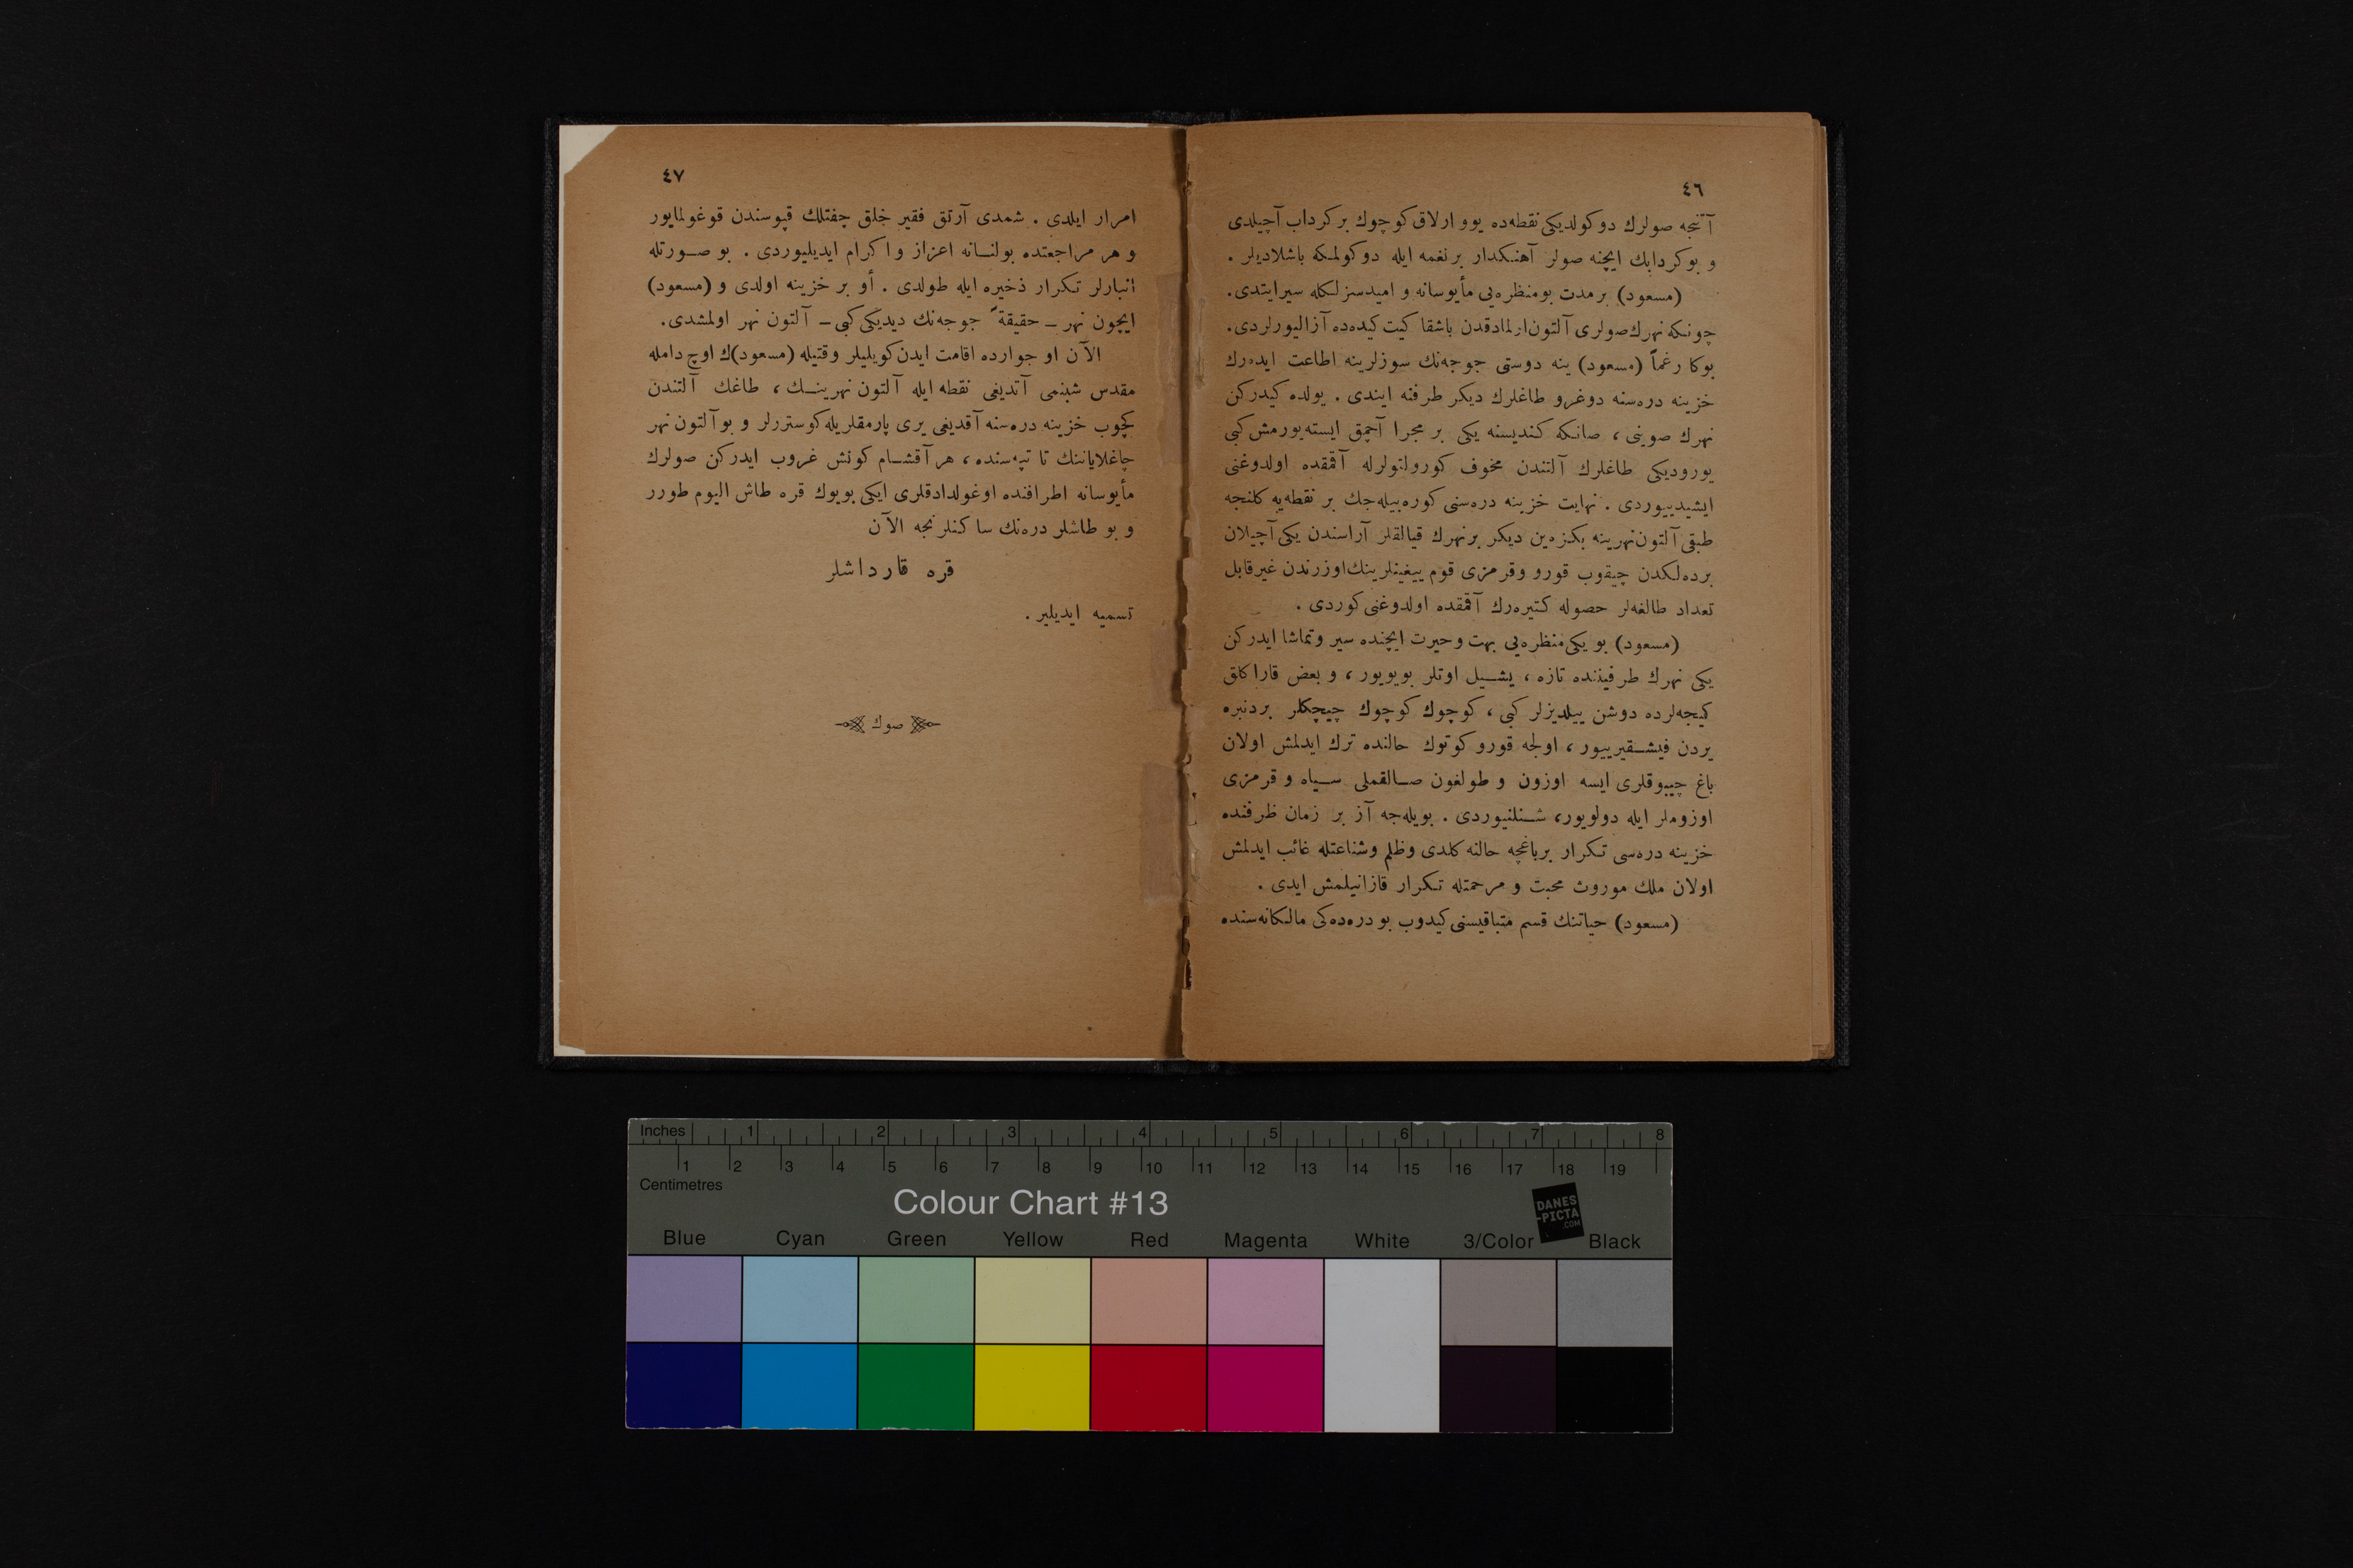 ٤٦
آتنجه صولرك دوكولديكى نقطه‌ده يووارلاق كوچوك بر كرداب آچيلدى
و بو كردابك ايچنه صولر آهنكدار بر نغمه ايله دوكولمكه باشلاديلر .
(مسعود) بر مدت بو منظره‌يى مأيوسانه و اميدسزلكله سير ايتدى.
چونكه نهرك صولرى آلتون اولمادقدن باشقا كيت كيده‌ده آزاليورلردى.
بوكا رغماً (مسعود) ينه دوستى جوجه‌نك سوزلرينه اطاعت ايده‌رك
خزينه دره‌سنه دوغرو طاغلرك ديكر طرفنه ايندى . يولده كيدركن
نهرك صوينى ، صانكه كنديسنه يكى بر مجرا آچمق ايسته‌يورمش كبى
يوروديكى طاغلرك آلتندن مخوف كورولتولرله آقمقده اولدوغنى
ايشيدييوردى . نهايت خزينه دره‌سنى كوره‌بيله‌جك بر نقطه‌يه كلنجه
طبقى آلتون نهرينه بكزه‌ين ديكر بر نهرك قيالقلر آراسندن يكى آچيلان
بر ده‌لكدن چيقوب قورو و قرمزى قوم ييغينلرينك اوزرندن غير قابل
تعداد طالغه‌لر حصوله كتيره‌رك آقمقده اولدوغنى كوردى .
(مسعود) بو يكى منظره‌يى بهت و حيرت ايچنده سير و تماشا ايدركن
يكى نهرك طرفيننده تازه ، يشيل اوتلر بويويور ، و بعض قارا كلق
كيجه‌لرده دوشن ييلديزلر كبى ، كوچوك كوچوك چيچكلر بردنبره
يردن فيشقيرييور ، اولجه قورو كوتوك حالنده ترك ايدلمش اولان
باغ چيبوقلرى ايسه اوزون و طولغون صالقملى سياه و قرمزى
اوزوملر ايله دولويور، شنلنيوردى . بويله‌جه آز بر زمان ظرفنده
خزينه دره‌سى تكرار بر باغچه حالنه كلدى و ظلم و شناعتله غائب ايدلمش
اولان ملك موروث محبت و مرحمتله تكرار قازانيلمش ايدى .
(مسعود) حياتنك قسم متباقيسنى كيدوب بو دره‌ده‌كى مالكانه‌سنده
٤٧
امرار ايلدى . شمدى آرتق فقير خلق چفتلك قپوسندن قوغولمايور
و هر مراجعتده بولنانه اعزاز و اكرام ايديليوردى . بو صورتله
انبارلر تكرار ذخيره ايله طولدى . أو بر خزينه اولدى و (مسعود)
ايچون نهر ــ حقيقةً جوجه‌نك ديديكى كبى ــ آلتون نهر اولمشدى.
الآن او جوارده اقامت ايدن كويليلر وقتيله (مسعود)ك اوچ دامله
مقدس شبنمى آتديغى نقطه ايله آلتون نهرينك ، طاغك آلتندن
كچوب خزينه دره‌سنه آقديغى يرى پارمقلريله كوستررلر و بو آلتون نهر
چاغلاياننك تا تپه‌سنده ، هر آقشام كونش غروب ايدركن صولرك
مأيوسانه اطرافنده اوغولدادقلرى ايكى بويوك قره طاش اليوم طورر
و بو طاشلر دره‌نك ساكنلرنجه الآن
قره قارداشلر
تسميه ايديلير .
صوك
Inches 1 2 3 4 5 6 7 8
1 2 3 4 5 6 7 8 9 10 11 12 13 14 15 16 17 18 19
Centimetres
Colour Chart #13
DANES
-PICTA
.COM
Blue Cyan Green Yellow Red Magenta White 3/Color Black